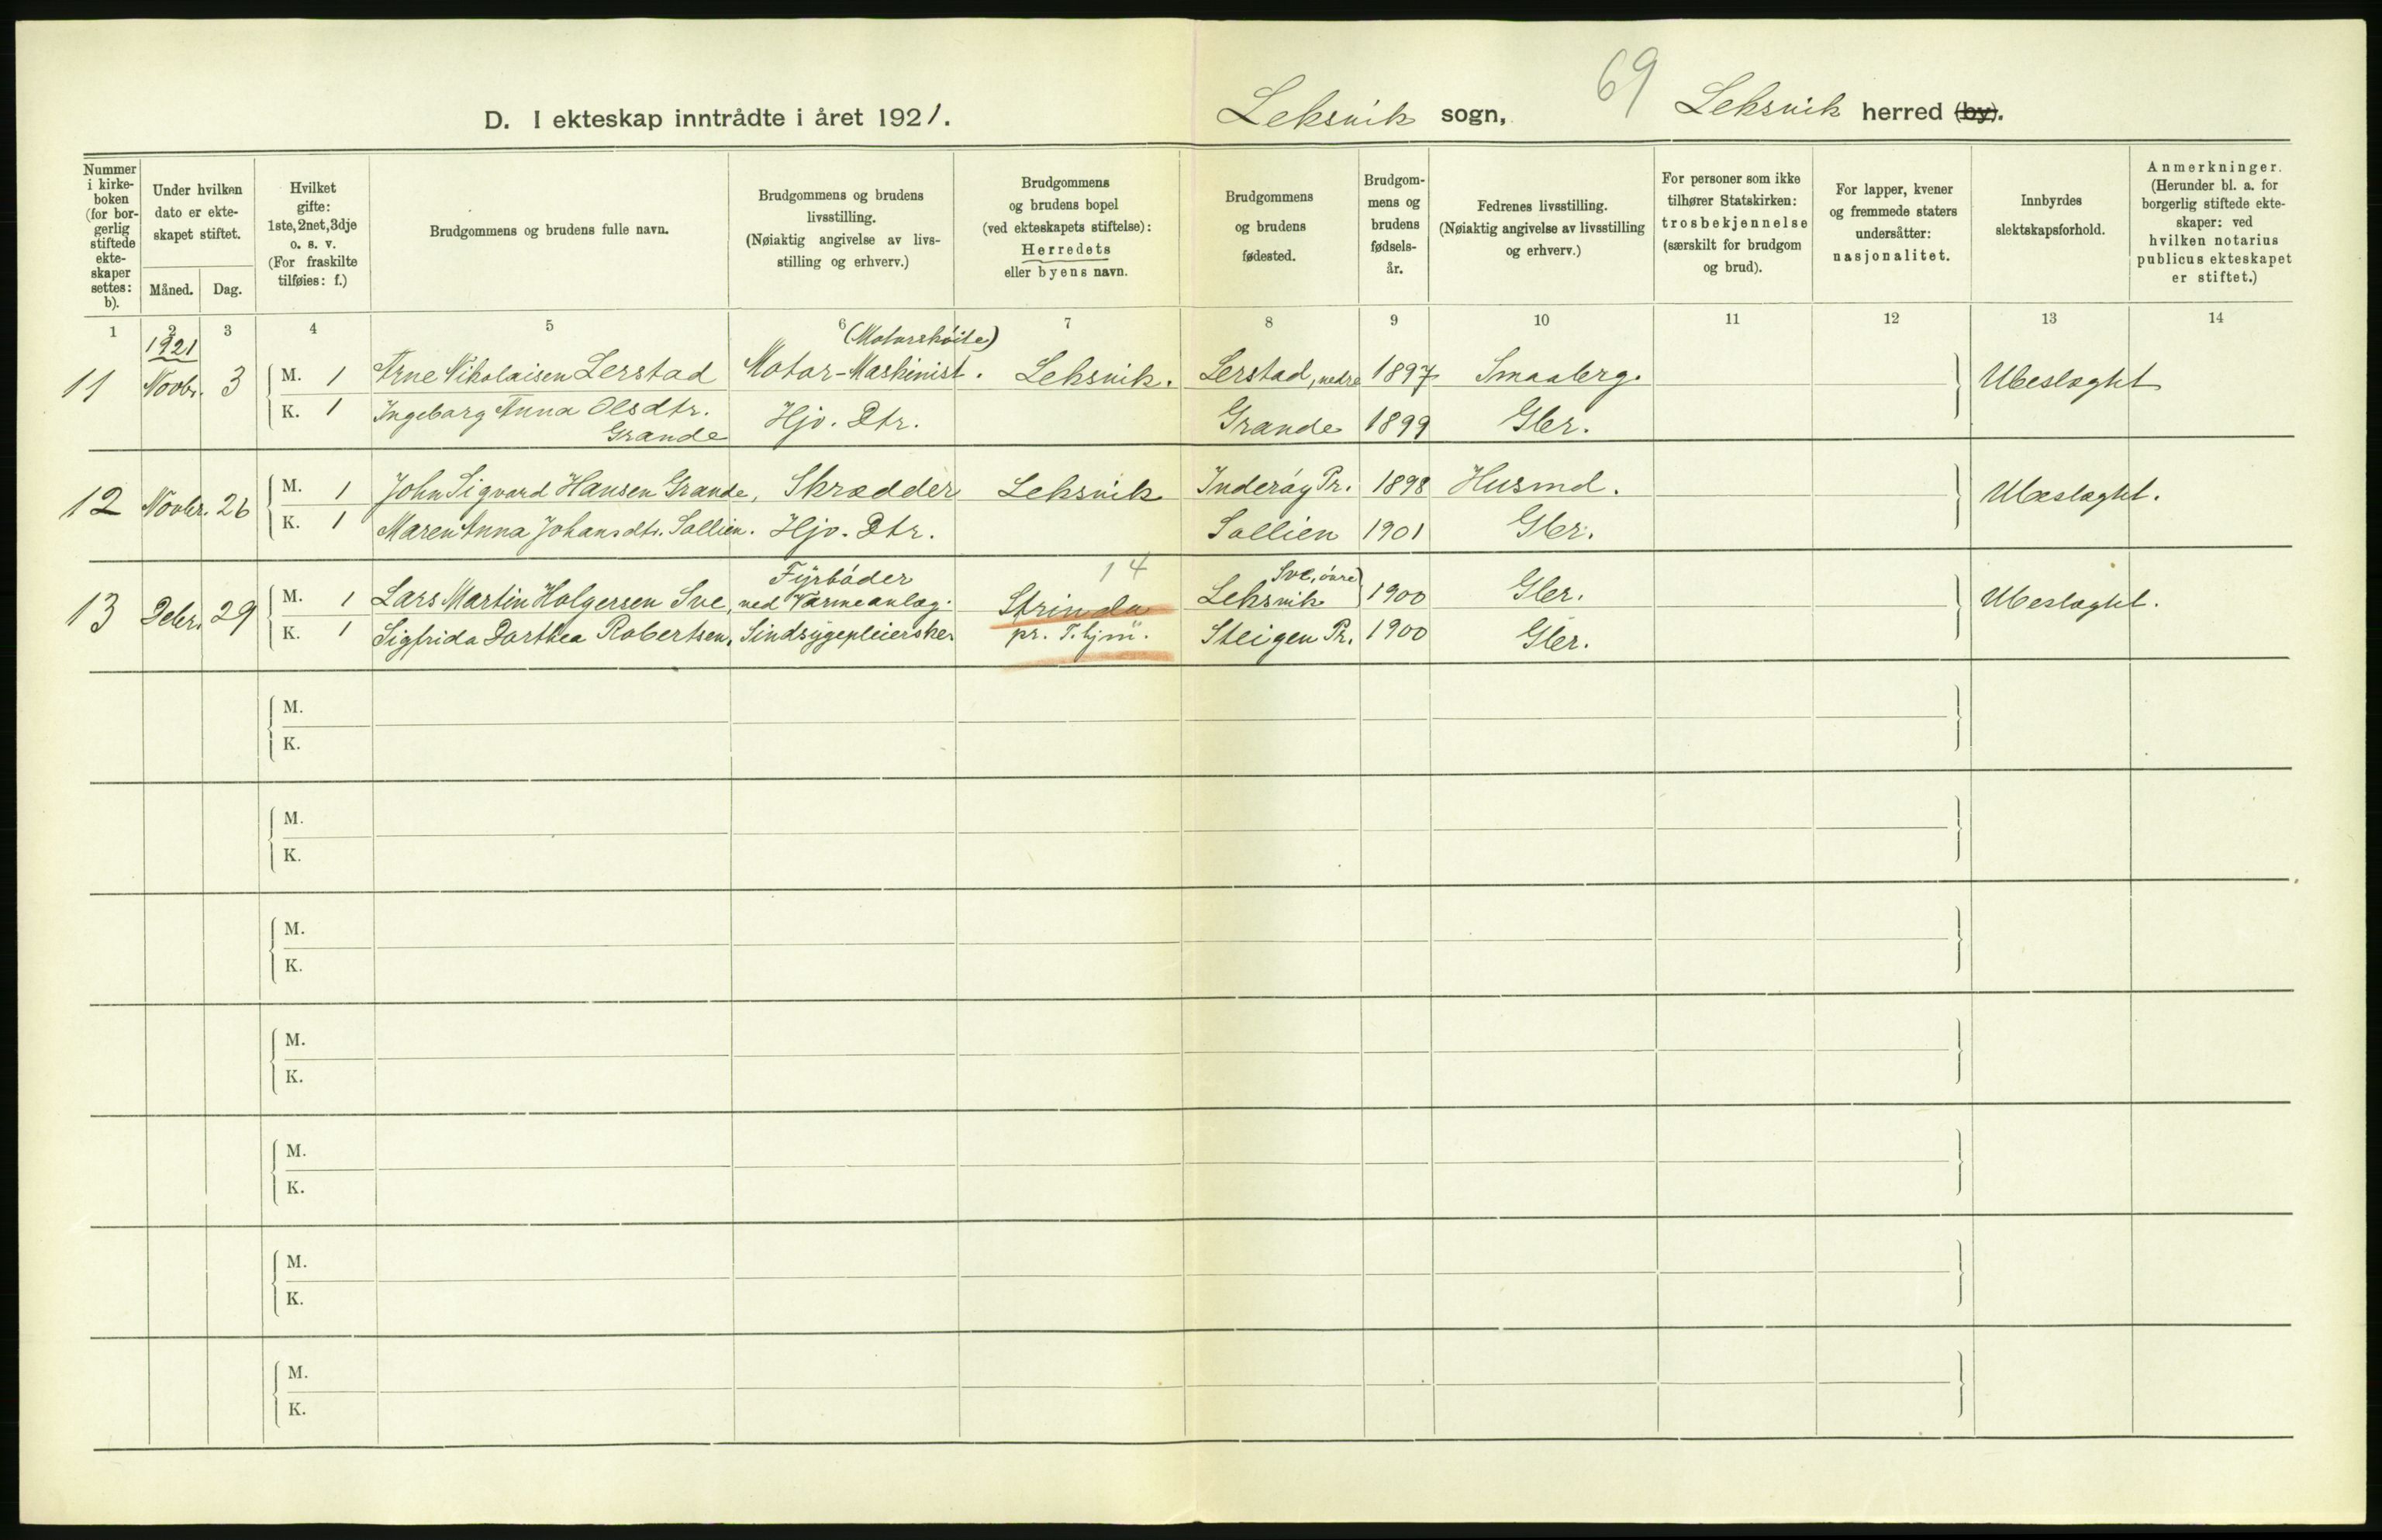 D. I ekteskap inntrådte i året 1921.
Leksvik sogn, 69 Leksvik herred (by).
Nummer i kirke- boken (for bor- gerlig stiftede ekte- skaper settes: b).
Under hvilken dato er ekte- skapet stiftet.
Måned. Dag.
Hvilket gifte: 1ste, 2net, 3dje o. s. v. (For fraskilte tilføies: f.)
Brudgommens og brudens fulle navn.
Brudgommens og brudens livsstilling. (Nøiaktig angivelse av livs- stilling og erhverv.)
Brudgommens og brudens bopel (ved ekteskapets stiftelse): Herredets eller byens navn.
Brudgommens og brudens fødested.
Brudgom- mens og brudens fødsels- år.
Fedrenes livsstilling. (Nøiaktig angivelse av livsstilling og erhverv.)
For personer som ikke tilhører Statskirken: trosbekjennelse (særskilt for brudgom og brud).
For lapper, kvener og fremmede staters undersåtter: nasjonalitet.
Innbyrdes slektskapsforhold.
Anmerkninger. (Herunder bl. a. for borgerlig stiftede ekte- skaper: ved hvilken notarius publicus ekteskapet er stiftet.)
1 2 3 4 5 6 7 8 9 10 11 12 13 14
1921
(Motorskøite)
11 Novbr. 3 M. 1 Arne Nikolaisen Lerstad Motor-Maskinist. Leksvik. Lerstad, nedre 1897 Smaaberg. Ubeslægtet
K. 1 Ingeborg Anna Olsdtr. Grande Hjv. Dtr. Grande 1899 Gbr.
12 Novbr. 26 M. 1 John Sigvard Hansen Grande, Skrædder Leksvik Inderøy Pr. 1898 Husmd. Ubeslægtet.
K. 1 Maren Anna Johansdtr. Sollien. Hjv. Dtr. Sollien 1901 Gbr.
14
13 Debr. 29 M. 1 Lars Martin Holgersen Sve, Fyrbøder ved Varmeanlæg. Strinda Leksvik Sve, øvre 1900 Gbr. Ubeslægtet.
K. 1 Sigfrida Dorthea Robertsen, Sindsygepleierske pr. T.hjm. Steigen Pr. 1900 Gbr.
M.
K.
M.
K.
M.
K.
M.
K.
M.
K.
M.
K.
M.
K.